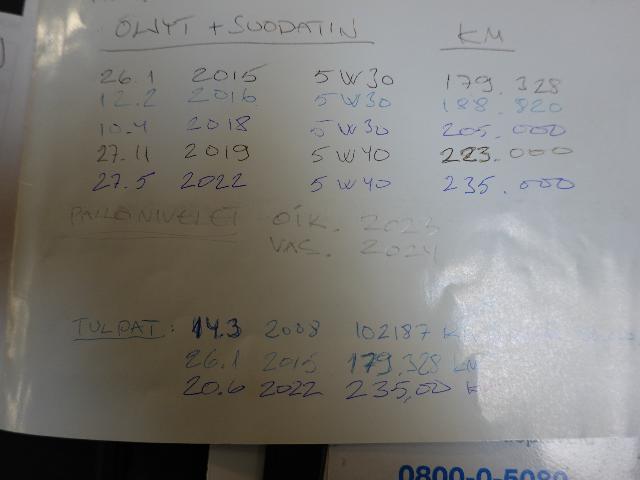 ÖLJYT + SUODATIN KM
26.1 2015 5W30 179.328
12.2 2016 5W30 188.820
10.4 2018 5W30 205.000
27.11 2019 5W40 223.000
27.5 2022 5W40 235.000
PALLONIVELET OIK. 2023
VAS. 2024
TULPAT: 14.3 2008 102187 KM
26.1 2015 179.328 KM
20.6 2022 235,00 K
0800-0-5080